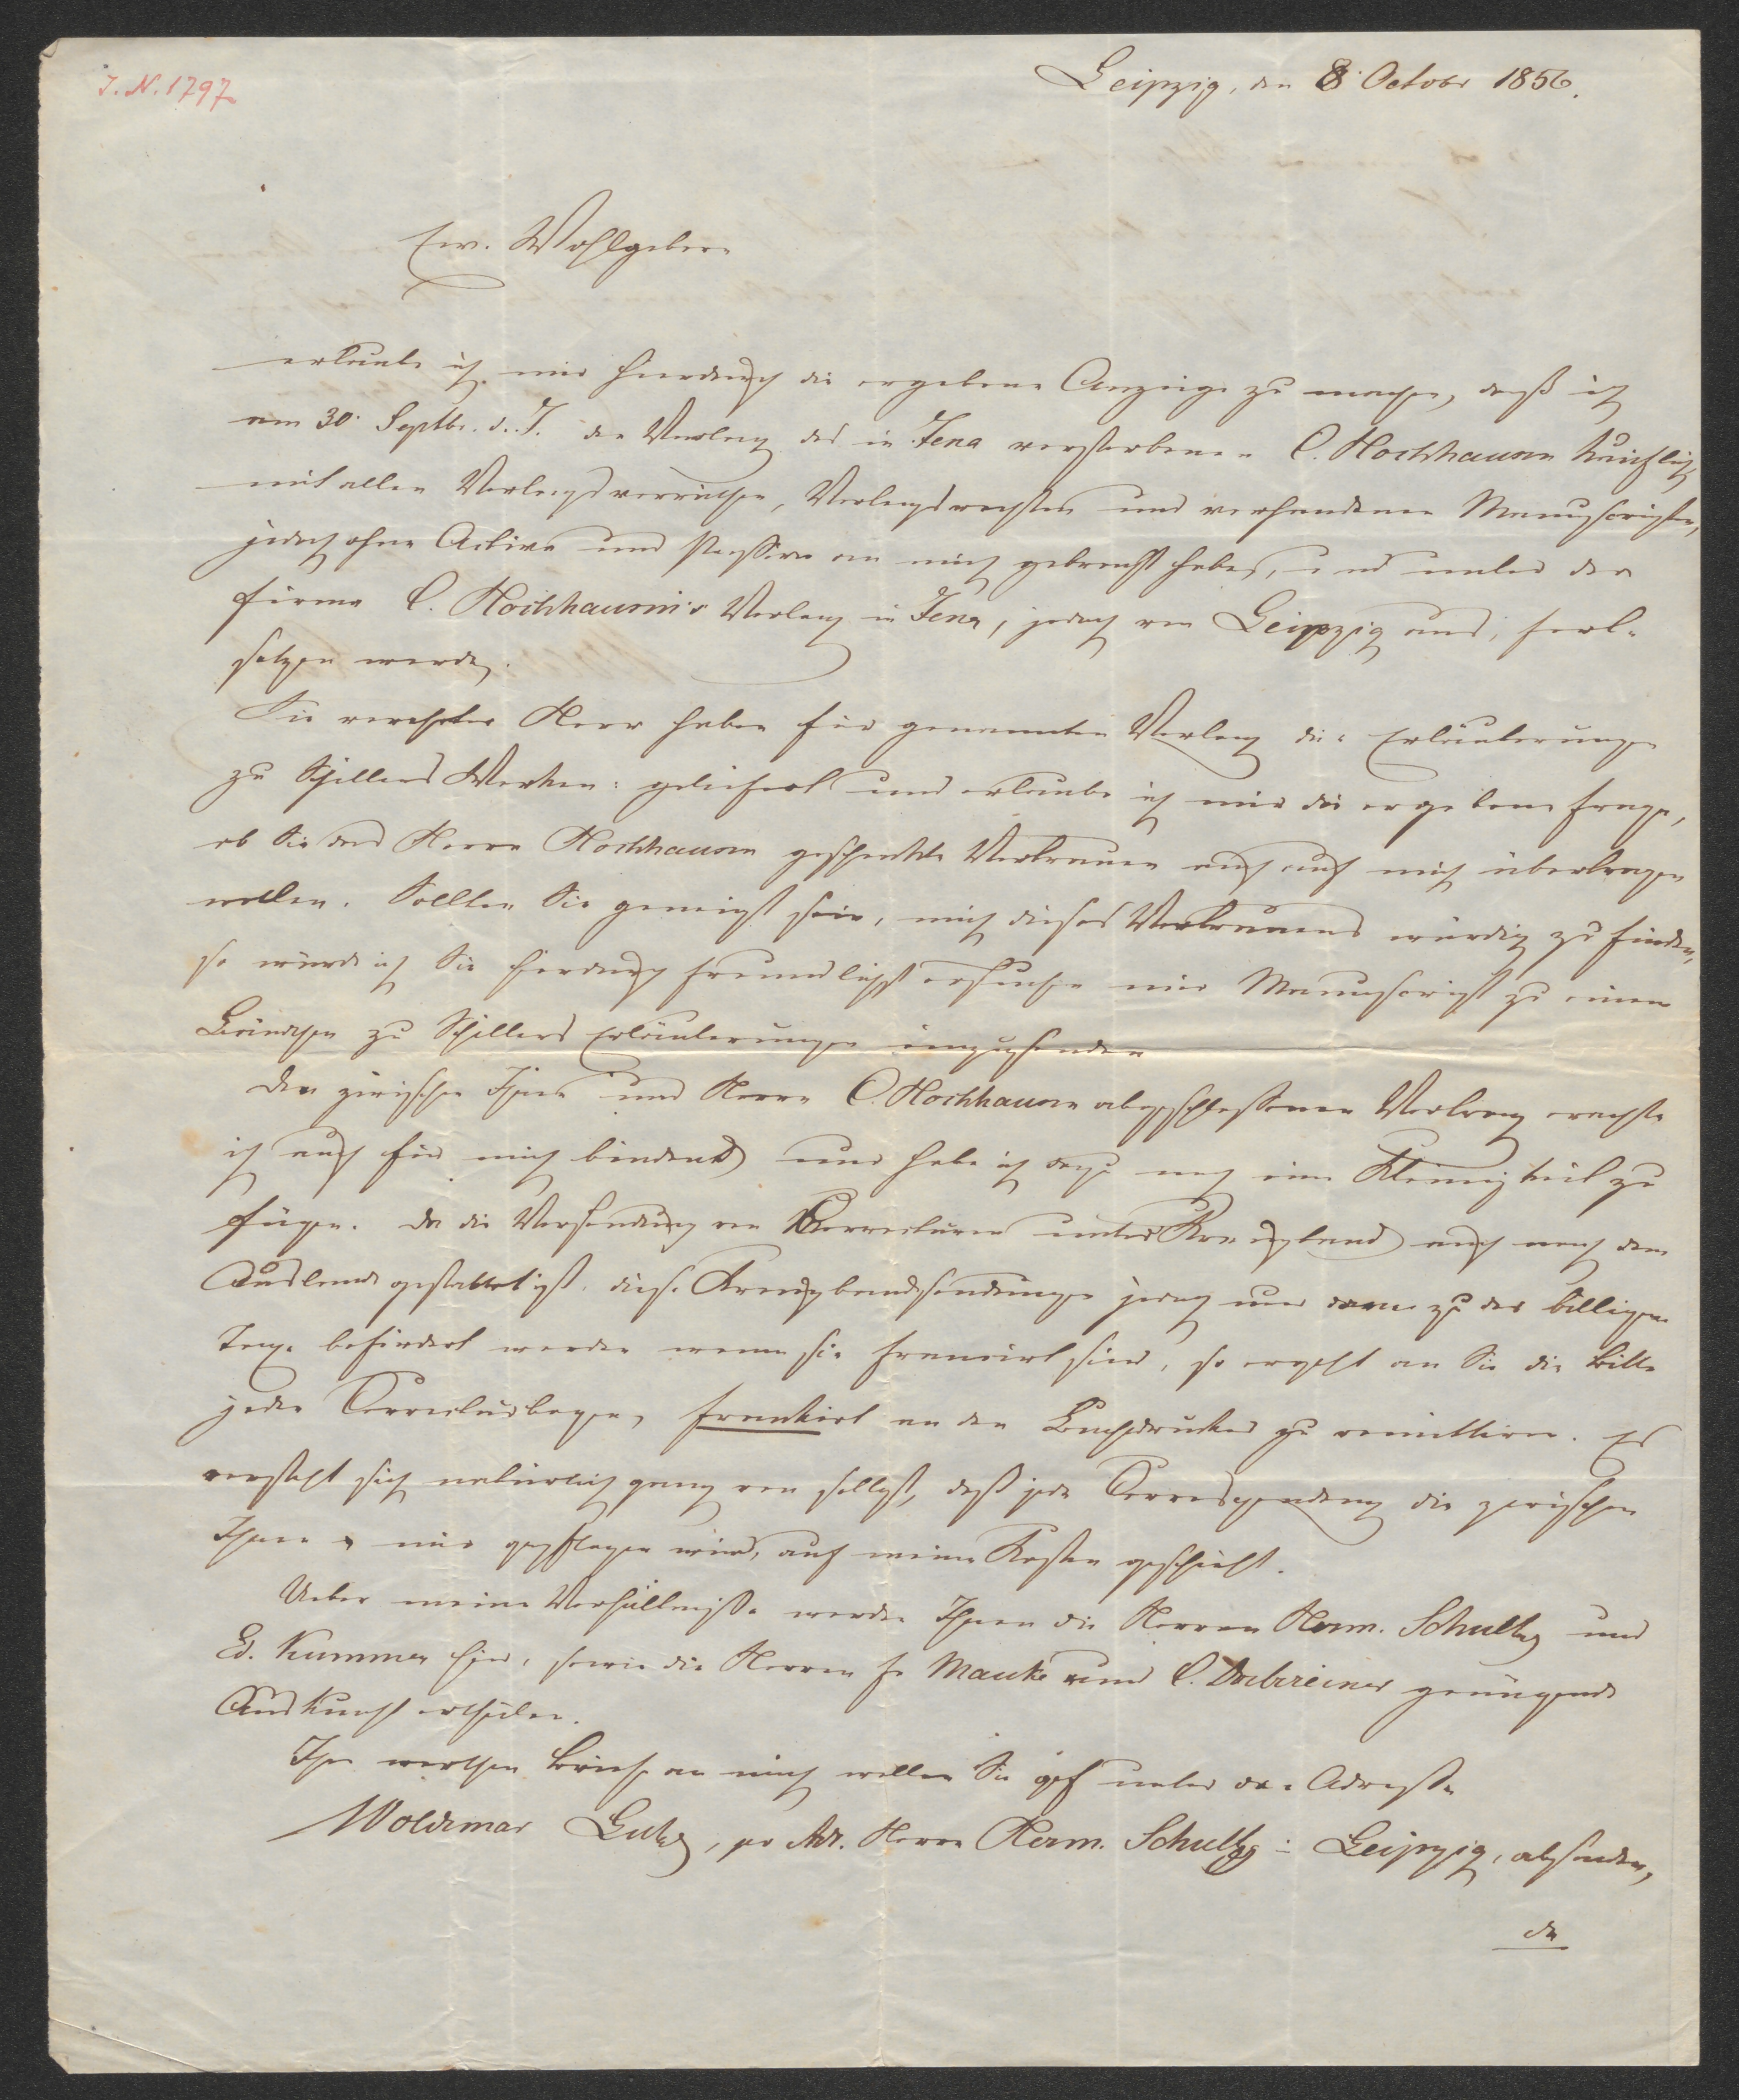 J. N. 1797
Leipzig, den 8. October 1856.
Ew. Wohlgeboren
erlaube ich mir hierdurch die ergebene Anzeige zu machen, daß ich
am 30. Septbr. d. J. den Verlag des in Jena verstorbenen C. Hochhausen käuflich
mit allen Verlagsvorräthen, Verlagsrechten und vorhandenen Manuscripten,
jedoch ohne Activa und Passiva an mich gebracht habe, und unter der
Firma C. Hochhausen's Verlag in Jena, jedoch von Leipzig aus, fort-
setzen werde.
Sie verehrter Herr haben für genannten Verlag die Erläuterungen
zu Schillers Werken geliefert und erlaube ich mir die ergebene Frage,
ob Sie das Herrn Hochhausen geschenkte Vertrauen auch auf mich übertragen
wollen. Sollten Sie geneigt sein, mich dieses Vertrauens würdig zu finden,
so würde ich Sie hierdurch freundlichst ersuchen mir Manuscript zu einem
Bändchen zu Schillers Erläuterungen einzusenden
Den zwischen Ihnen und Herrn C. Hochhausen abgeschlossenen Vertrag erachte
ich auch für mich bindend und habe ich dazu noch eine Kleinigkeit zu
fügen. Da die Versendung von Correcturen unter Kreuzband auch nach dem
Auslande gestattet ist, diese Kreuzbandsendungen jedoch nur dann zu der billigen
Taxe befördert werden wenn sie francirt sind, so ergeht an Sie die Bitte
jeden Correcturbogen, frankirt an den Buchdrucker zu remittiren. Es
versteht sich natürlich ganz von selbst, daß jede Correspondenz die zwischen
Ihnen & mir gepflogen wird, auf meine Kosten geschieht.
Ueber meine Verhältnisse werden Ihnen die Herren Herm. Schultze und
Ed. Kummer hier, sowie die Herren Fr Mauke und C. Doebereiner genügende
Auskunft ertheilen.
Ihre werthen Briefe an mich wollen Sie gef unter der Adresse
Woldemar , pr Adr. Herrn Herm. Schultze in Leipzig, absenden,
da